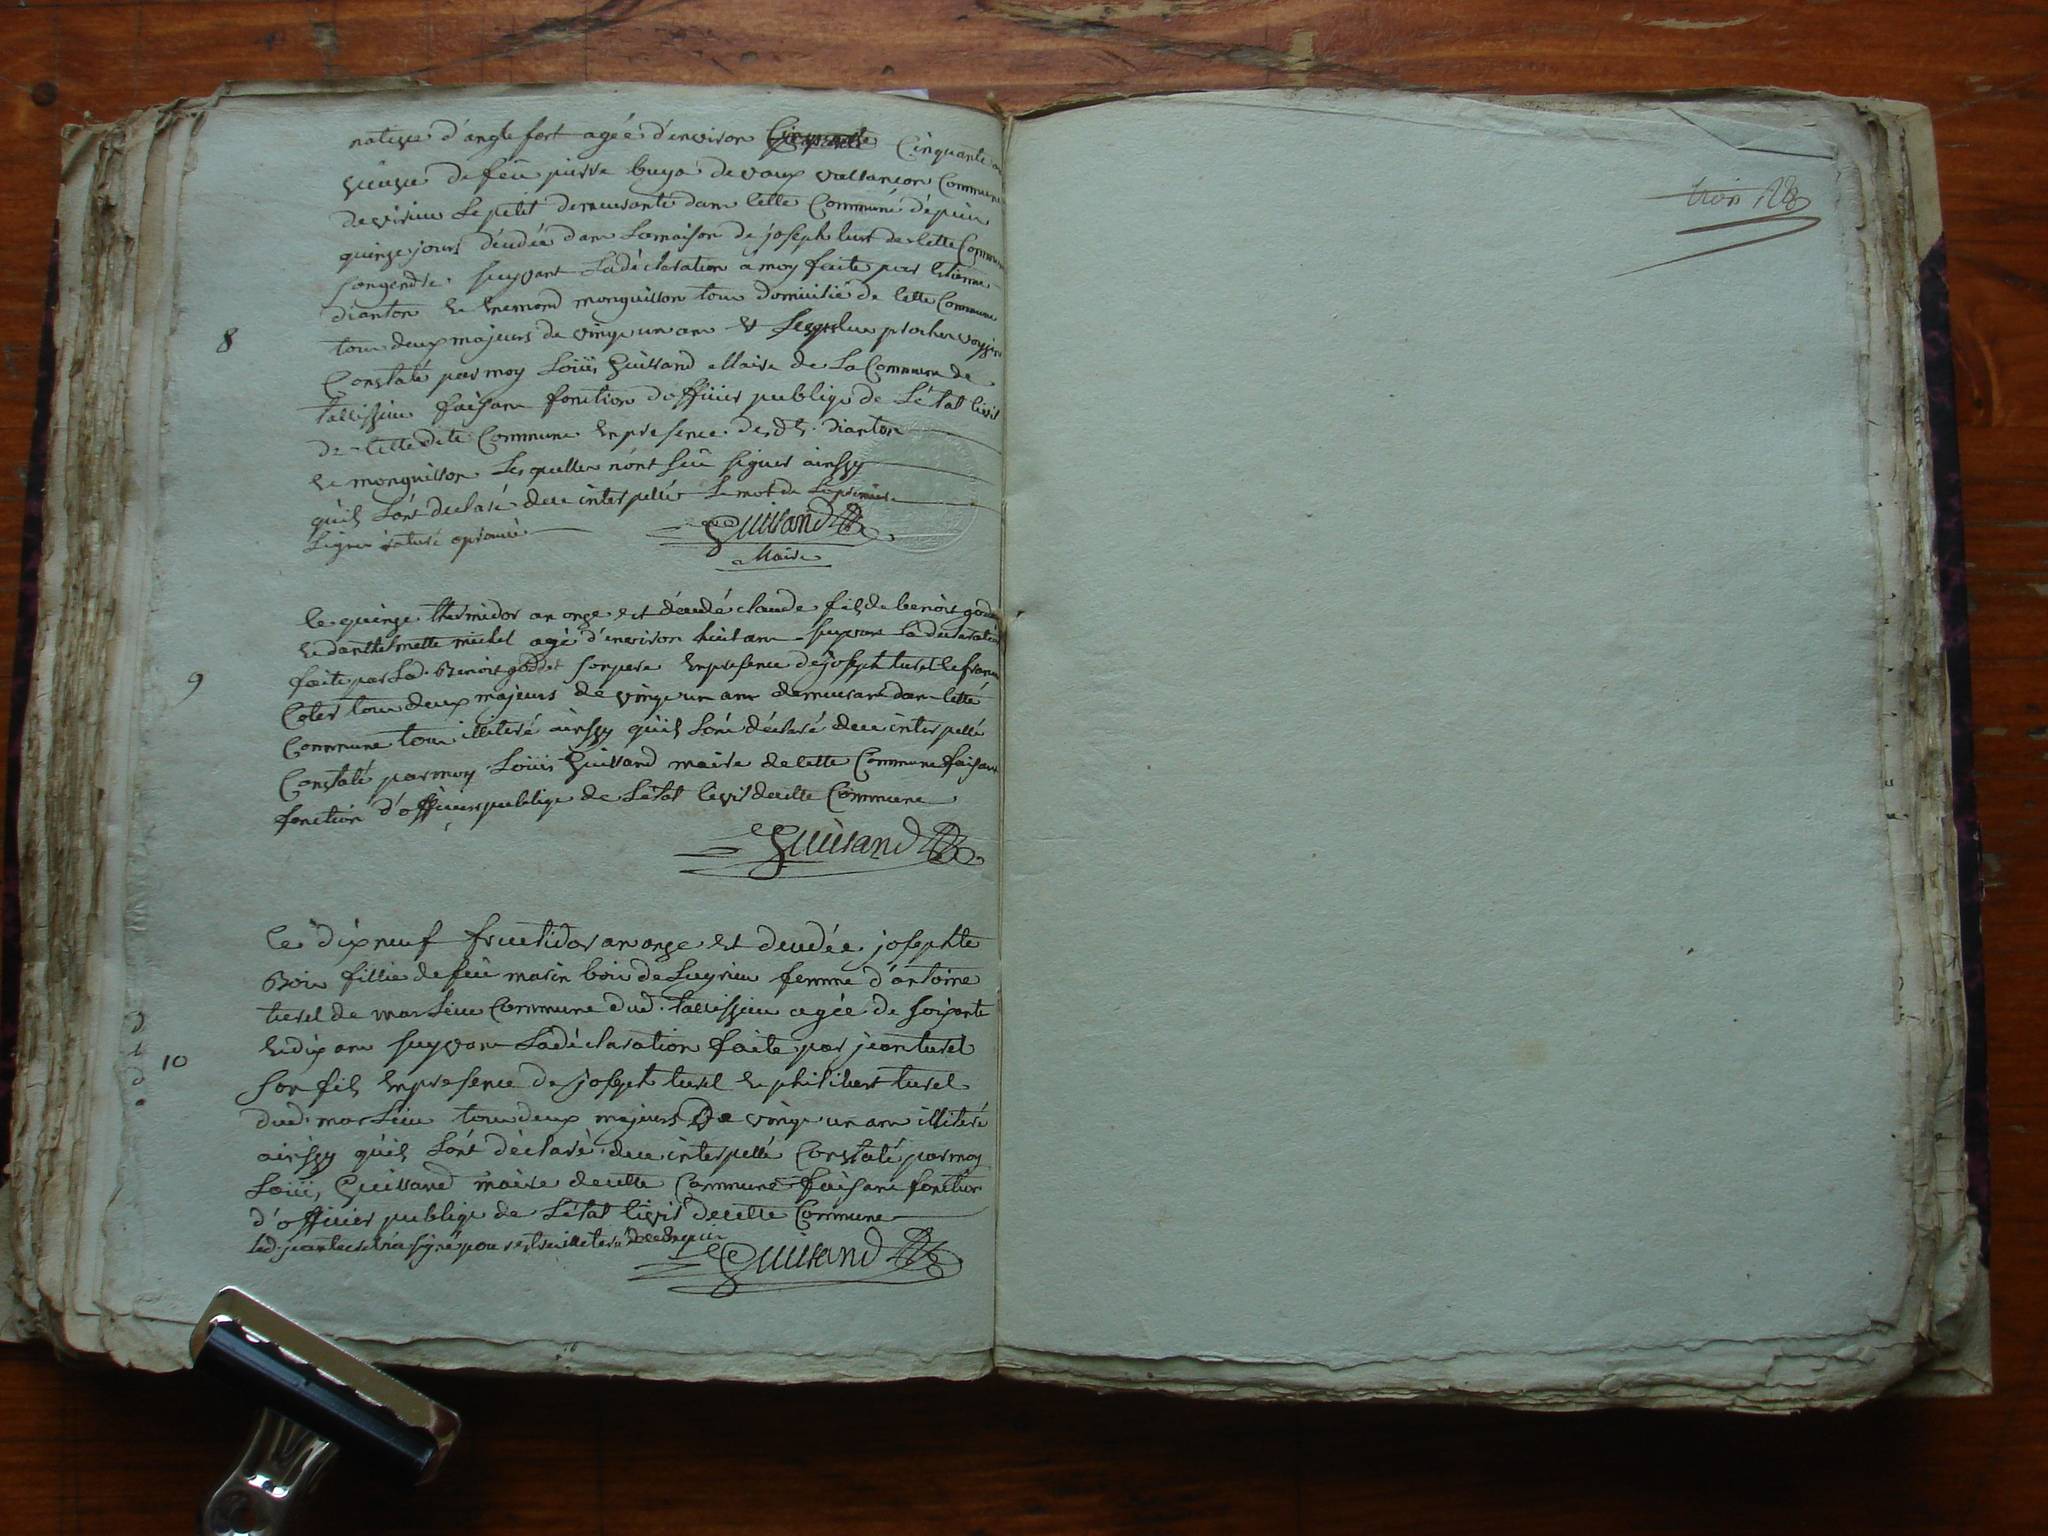 native d'anglefort agée d'environ Cinquante Cinquante an
veuve de feû pierre buya de vaux vallanson Commune
de virieu Le petit demeurante dans Cette Commune dépuis
quinze jours décedée dans La maison de joseph turel de Cette Commune
son gendre suyvant La déclaration à moy faite par Etienne
dianton Et monguillon tous domicilié de Cette Commune
8
tous deux majeurs de vingt un ans Et Les plus proches voysins
Constaté par moy Loüis Guissand Maire de La Commune de
tallissieu faisant fonction d'officier publique de L'état Civil
de Cette dite Commune En presence des d. dianton
Et monguillon Lesquelles n'ont Seû signer ainssy
quils L'ont declaré de ce interpellé Le mot de La premiere
Ligne raturé aprouvé
Guissand
Maire
le quinze thermidor an onze est décedé claude fils de benoit godet
Et d'anthelmette michel agé d'environ huit ans suyvant La declaration
9
faite par Le d. Benoit godet son pere En presence de joseph turel Et françois
tous deux majeurs de vingt un ans demeurant dans Cette
Commune tous illiteré ainssy quils L'ont déclaré de ce interpellé
Constaté par moy Loüis Guissand maire de Cette Commune faisant
fonction d'officier publique de L'état Civil de Cette Commune
Guissand
le dix neuf fructidor an onze est decedée josephte
Bois fillie de feû marin bois de Luyrieu femme d'antoine
turel de marlieu Commune dud. tallissieu agée de soixante
Et dix ans suyvant La déclaration faite par jean turel
10
son fils En presence de joseph turel Et philibert turel
dud. marlieu tous deux majeurs De vingt un ans illiteré
ainssy quils L'ont déclaré de ce interpellé Constaté par moy
Loüis Guissand maire de Cette Commune faisant fonction
d'officier publique de L'état Civil de Cette Commune
Led. jean turel n'a signé pour estre illiteré de ce Enquis
Guissand